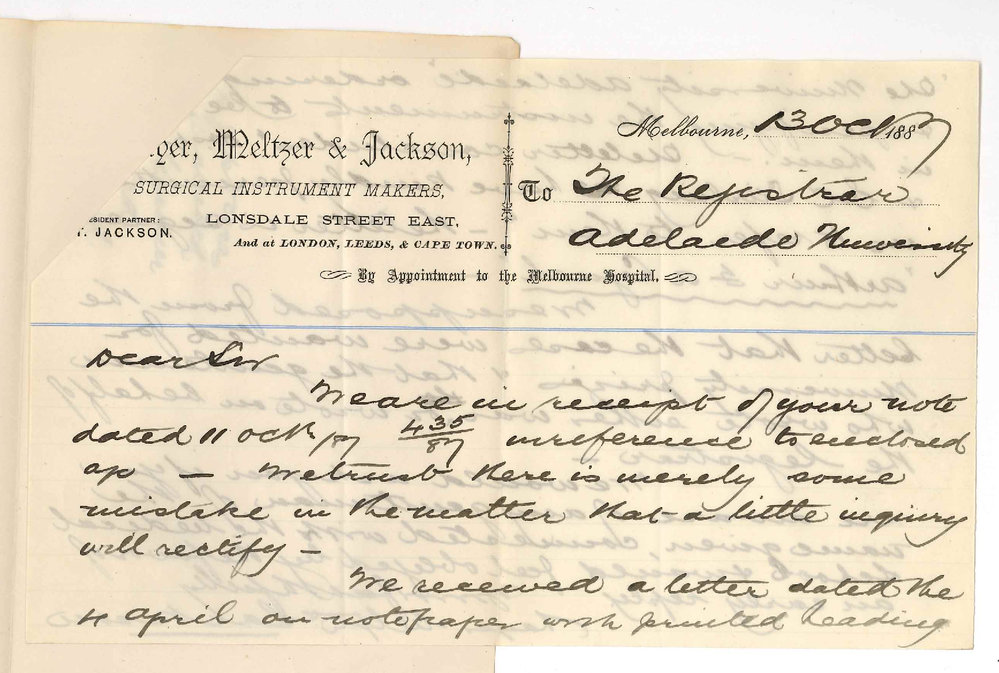 ger, Meltzer & Jackson,
SURGICAL INSTRUMENT MAKERS,
ESIDENT PARTNER:
T. JACKSON.
LONSDALE STREET EAST,
And at LONDON, LEEDS, & CAPE TOWN.
By Appointment to the Melbourne Hospital.
Melbourne, 13 Oct 1887
To The Registrar
Adelaide University
Dear Sir
We are in receipt of your note
dated 11 Oct /87 435/87 in reference to enclosed
a/c — We trust there is merely some
mistake in the matter that a little inquiry
will rectify —
We received a letter dated the
4 April on notepaper with printed heading